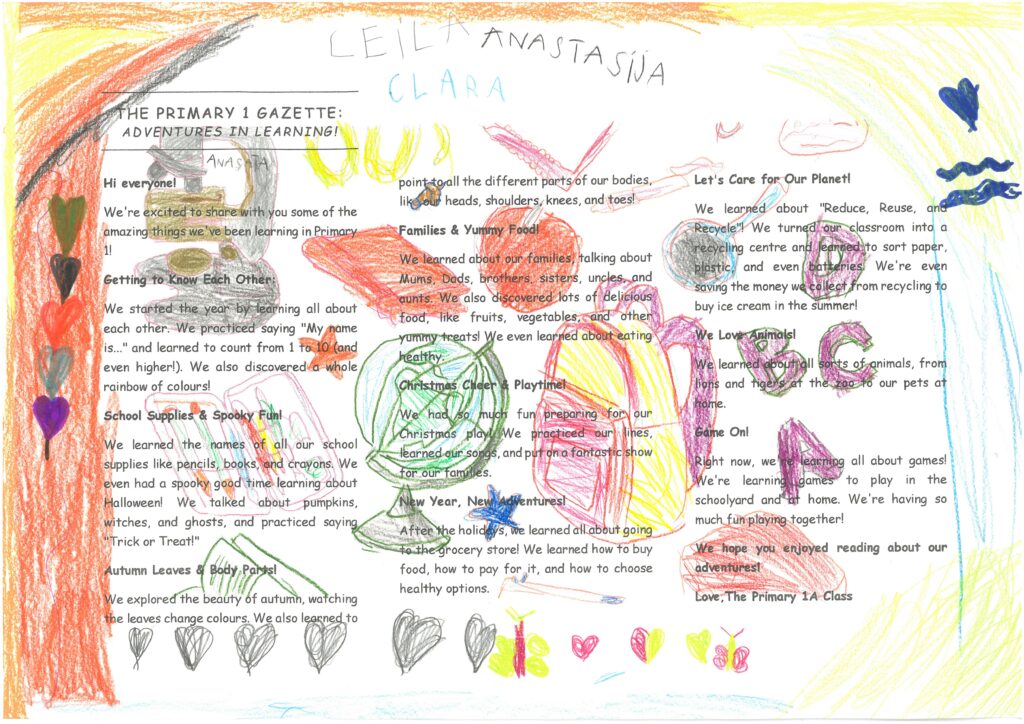 LEILA ANASTASIJA
CLARA
THE PRIMARY 1 GAZETTE:
ADVENTURES IN LEARNING!
ANASATA
Hi everyone!
We're excited to share with you some of the
amazing things we've been learning in Primary
1!
Getting to Know Each Other:
We started the year by learning all about
each other. We practiced saying "My name
is..." and learned to count from 1 to 10 (and
even higher!). We also discovered a whole
rainbow of colours!
School Supplies & Spooky Fun!
We learned the names of all our school
supplies like pencils, books, and crayons. We
even had a spooky good time learning about
Halloween! We talked about pumpkins,
witches, and ghosts, and practiced saying
"Trick or Treat!"
Autumn Leaves & Body Parts!
We explored the beauty of autumn, watching
the leaves change colours. We also learned to
point to all the different parts of our bodies,
like our heads, shoulders, knees, and toes!
Families & Yummy Food!
We learned about our families, talking about
Mums, Dads, brothers, sisters, uncles, and
aunts. We also discovered lots of delicious
food, like fruits, vegetables, and other
yummy treats! We even learned about eating
healthy.
Christmas Cheer & Playtime!
We had so much fun preparing for our
Christmas play! We practiced our lines,
learned our songs, and put on a fantastic show
for our families.
New Year, New Adventures!
After the holidays, we learned all about going
to the grocery store! We learned how to buy
food, how to pay for it, and how to choose
healthy options.
Let's Care for Our Planet!
We learned about "Reduce, Reuse, and
Recycle"! We turned our classroom into a
recycling centre and learned to sort paper,
plastic, and even batteries. We're even
saving the money we collect from recycling to
buy ice cream in the summer!
We Love Animals!
We learned about all sorts of animals, from
lions and tigers at the zoo to our pets at
home.
Game On!
Right now, we're learning all about games!
We're learning games to play in the
schoolyard and at home. We're having so
much fun playing together!
We hope you enjoyed reading about our
adventures!
Love, The Primary 1A Class
D
B C
A